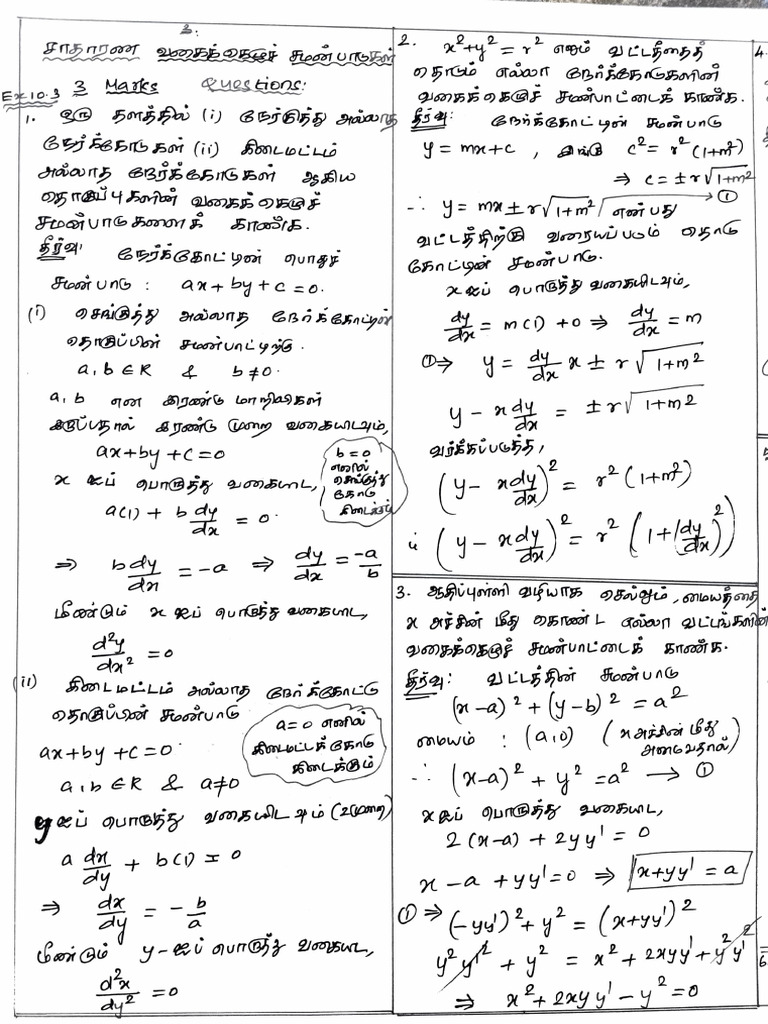 3.
சாதாரண வகைக்கெழுச் சமன்பாடுகள்
Ex 10.3 3 Marks Questions:
1. ஒரு தளத்தில் (i) நேர்குத்து அல்லாத
நேர்க்கோடுகள் (ii) கிடைமட்டம்
அல்லாத நேர்க்கோடுகள் ஆகிய
தொகுப்புகளின் வகைக்கெழுச்
சமன்பாடுகளைக் காண்க.
தீர்வு: நேர்க்கோட்டின் பொதுச்
சமன்பாடு : ax + by + c = 0.
(i) செங்குத்து அல்லாத நேர்க்கோட்டின்
தொகுப்பின் சமன்பாட்டிற்கு.
a, b ∈ R & b ≠ 0.
a, b என இரண்டு மாறிலிகள்
இருப்பதால் இரண்டு முறை வகையிடவும்,
ax + by + c = 0
b = 0
எனில்
செங்குத்து
கோடு
கிடைக்கும்
x ஐப் பொருத்து வகையிட,
a(1) + b dy/dx = 0.
⇒ b dy/dx = -a ⇒ dy/dx = -a/b
மீண்டும் x ஐப் பொருத்து வகையிட,
d²y/dx² = 0
(ii) கிடைமட்டம் அல்லாத நேர்க்கோட்டு
தொகுப்பின் சமன்பாடு
a = 0 எனில்
கிடைமட்டக் கோடு
கிடைக்கும்
ax + by + c = 0.
a, b ∈ R & a ≠ 0
y ஐப் பொருத்து வகையிடவும் (2முறை)
a dx/dy + b(1) = 0
⇒ dx/dy = - b/a
மீண்டும் y-ஐப் பொருத்து வகையிட,
d²x/dy² = 0
2. x² + y² = r² எனும் வட்டத்தைத்
தொடும் எல்லா நேர்க்கோடுகளின்
வகைக்கெழுச் சமன்பாட்டைக் காண்க.
தீர்வு: நேர்க்கோட்டின் சமன்பாடு
y = mx + c , இங்கு c² = r² (1+m²)
⇒ c = ± r √1+m²
∴ y = mx ± r √1+m² என்பது → ①
வட்டத்திற்கு வரையப்படும் தொடு
கோட்டின் சமன்பாடு.
x ஐப் பொருத்து வகையிடவும்,
dy/dx = m(1) + 0 ⇒ dy/dx = m
①⇒ y = dy/dx x ± r √1+m²
y - x dy/dx = ± r √1+m²
வர்க்கப்படுத்த,
(y - x dy/dx)² = r² (1+m²)
∴ (y - x dy/dx)² = r² (1 + (dy/dx)²)
3. ஆதிப்புள்ளி வழியாக செல்லும், மையத்தை
x அச்சின் மீது கொண்ட எல்லா வட்டங்களின்
வகைக்கெழுச் சமன்பாட்டைக் காண்க.
தீர்வு: வட்டத்தின் சமன்பாடு
(x-a)² + (y-b)² = a²
மையம் : (a,0) (x அச்சின் மீது
அமைவதால்)
∴ (x-a)² + y² = a² → ①
x ஐப் பொருத்து வகையிட,
2(x-a) + 2yy' = 0
x - a + yy' = 0 ⇒ x + yy' = a
① ⇒ (-yy')² + y² = (x+yy')²
y²y'² + y² = x² + 2xyy' + y²y'²
⇒ x² + 2xyy' - y² = 0
4.